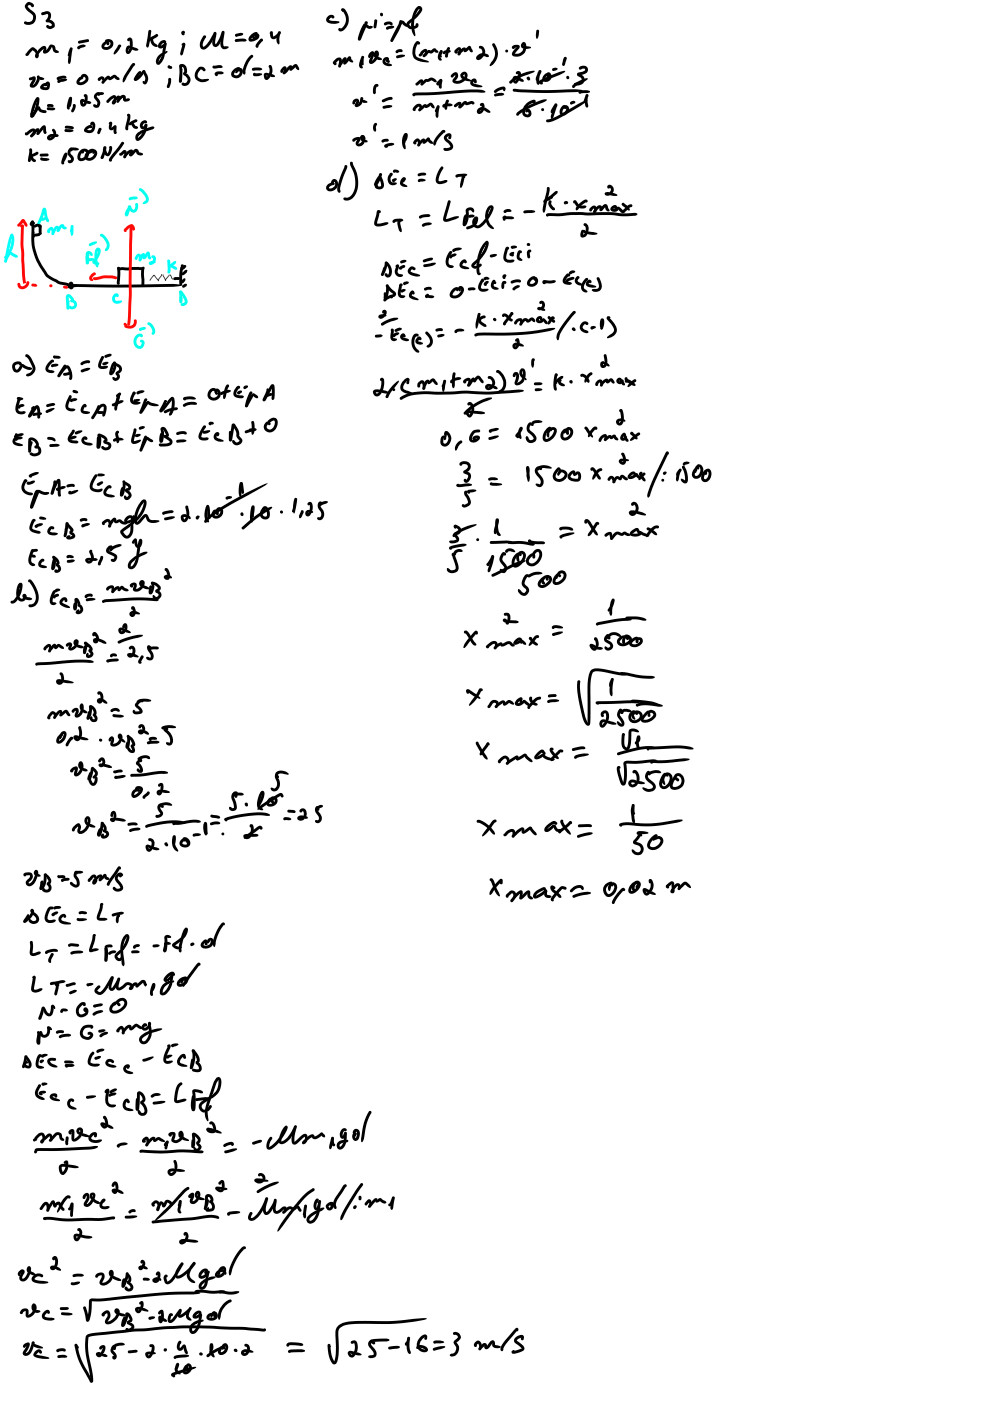 S3
m₁ = 0,2 kg ; μ = 0,4
v₀ = 0 m/s ; BC = d = 2 m
h = 1,25 m
m₂ = 0,4 kg
k = 1500 N/m
A m₁
N
h
Ff
m₂
K
B C D
G
a) EA = EB
EA = EcA + EpA = 0 + EpA
EB = EcB + EpB = EcB + 0
EpA = EcB
EcB = mgh = 2·10⁻¹·10·1,25
EcB = 2,5 J
b) EcB = mvB²/2
mvB²/2 = ²⁄ 2,5
mvB² = 5
0,2 · vB² = 5
vB² = 5/0,2
vB² = 5/2·10⁻¹ = 5·10/2 5 = 25
vB = 5 m/s
ΔEc = LT
LT = LFf = -Ff·d
LT = -μm₁gd
N - G = 0
N = G = mg
ΔEc = Ecc - EcB
Ecc - EcB = LFf
m₁vc²/2 - m₁vB²/2 = -μm₁gd
m₁vc²/2 = m₁vB²/2 - ²⁄ μm₁gd /:m₁
vc² = vB² - 2μgd
vc = √vB² - 2μgd
vc = √25 - 2·4/10·10·2 = √25-16 = 3 m/s
c) pi = pf
m₁vc = (m₁+m₂)·v'
v' = m₁vc/m₁+m₂ = 2·10⁻¹·3/6·10⁻¹
v' = 1 m/s
d) ΔEc = LT
LT = LFel = -K·xmax²/2
ΔEc = Ecf - Eci
ΔEc = 0 - Eci = 0 - Ec(c)
²⁄ -Ec(c) = -K·xmax²/2 /·(-1)
2·(m₁+m₂)v'/2 = k·xmax²
0,6 = 1500 xmax²
3/5 = 1500 xmax² /:1500
3/5 · 1/1500 = xmax²
500
xmax² = 1/2500
xmax = √1/2500
xmax = √1/√2500
xmax = 1/50
xmax = 0,02 m